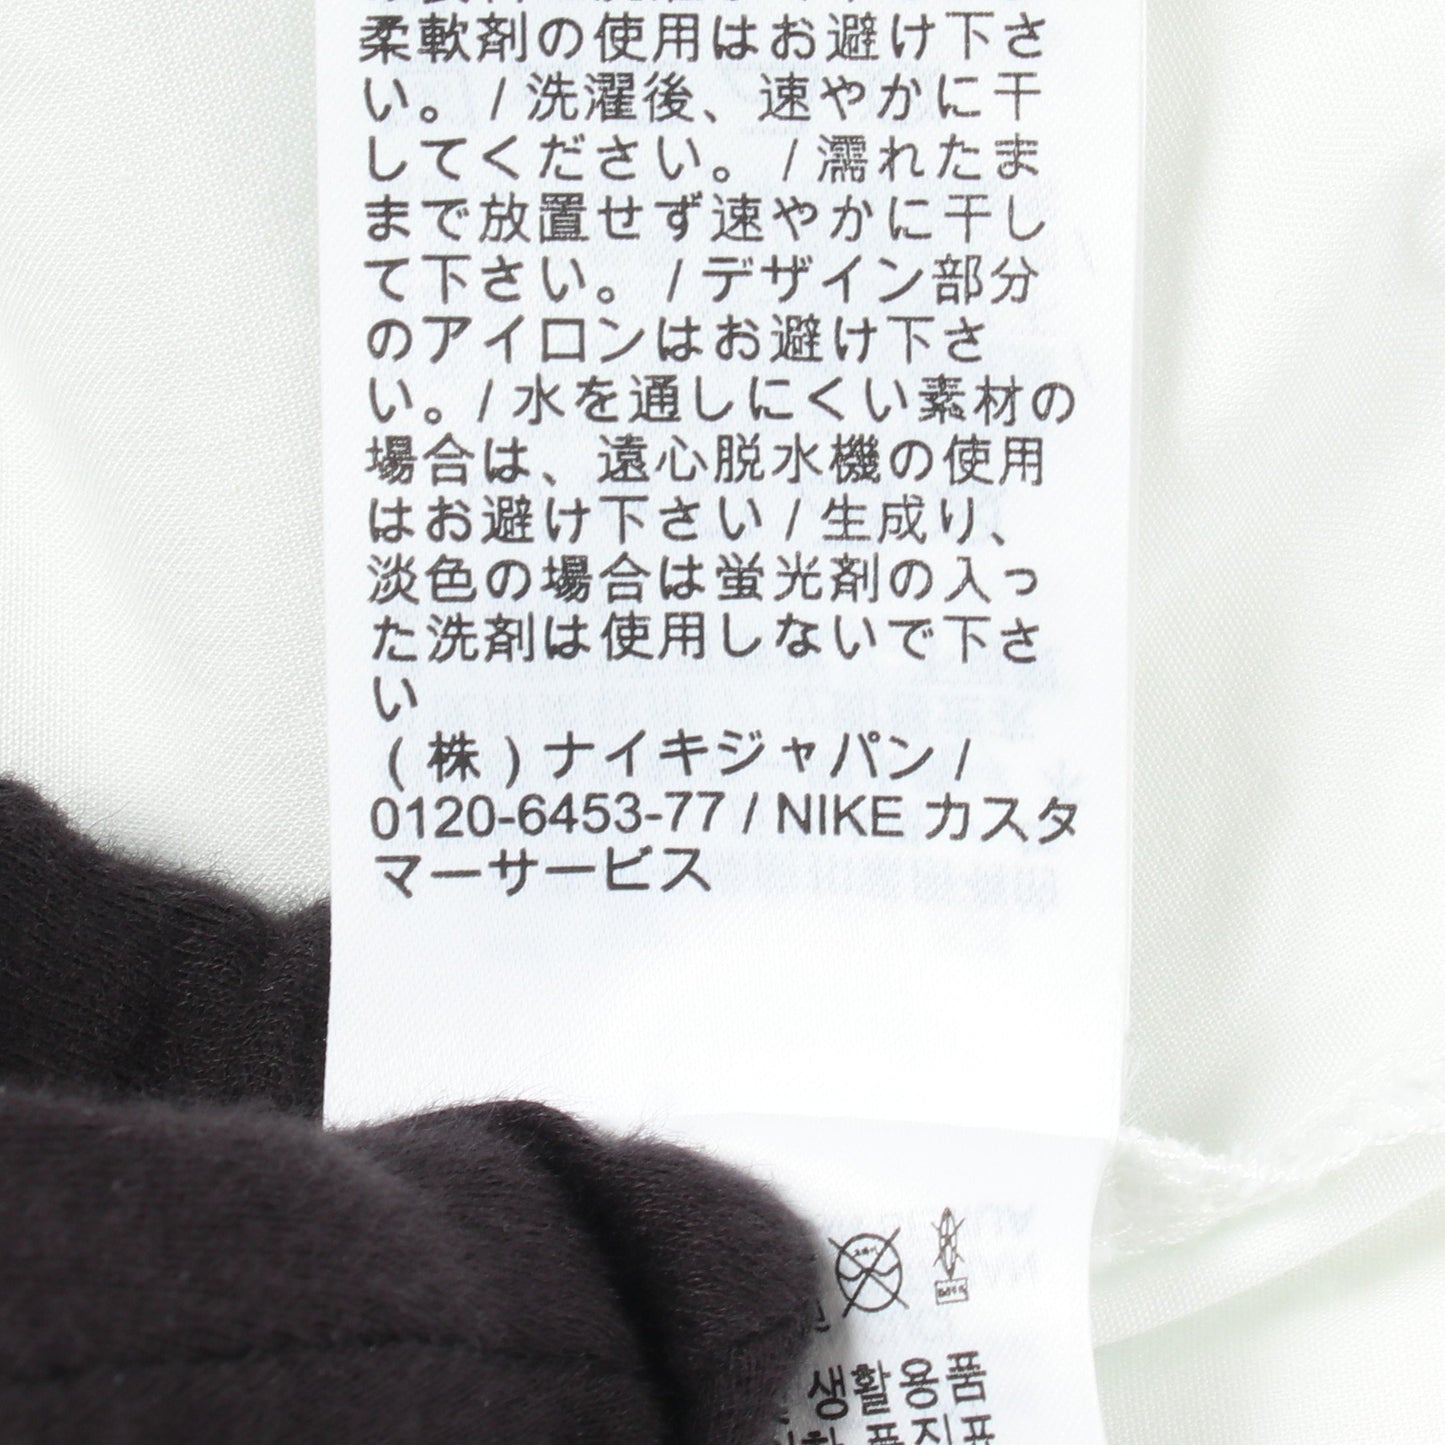 柔軟剤の使用はお避け下さ
い。/ 洗濯後、速やかに干
してください。/ 濡れたま
まで放置せず速やかに干し
て下さい。/ デザイン部分
のアイロンはお避け下さ
い。/ 水を通しにくい素材の
場合は、遠心脱水機の使用
はお避け下さい / 生成り、
淡色の場合は蛍光剤の入っ
た洗剤は使用しないで下さ
い
(株)ナイキジャパン /
0120-6453-77 / NIKE カスタ
マーサービス
생활용품